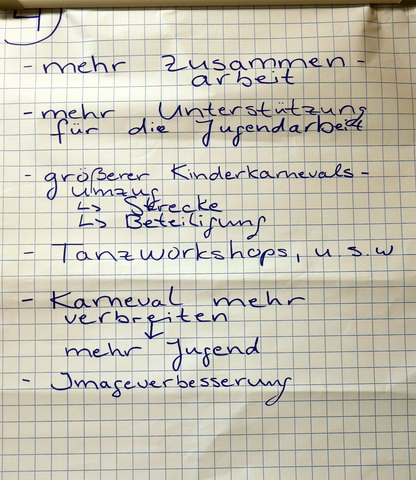 4)
- mehr Zusammen-
arbeit
- mehr Unterstützung
für die Jugendarbeit
- größerer Kinderkarnevals-
umzug
↳ Strecke
↳ Beteiligung
- Tanzworkshops, u.s.w
- Karneval mehr
verbreiten
↓
mehr Jugend
- Imageverbesserung